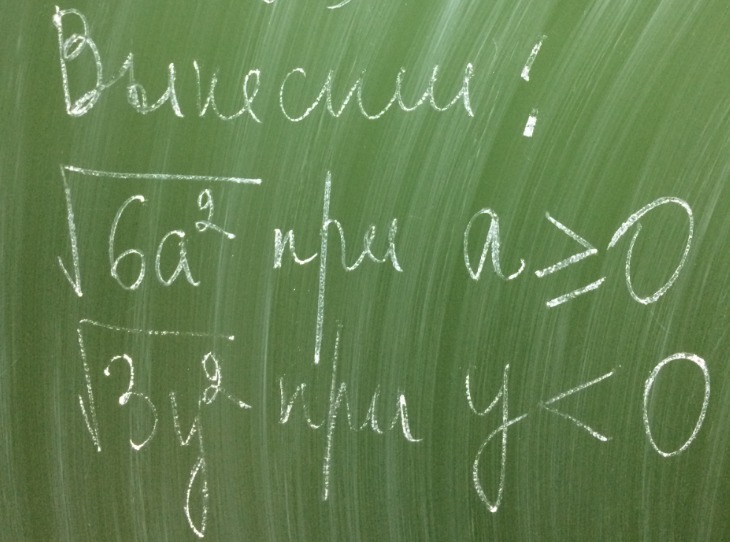 Вынесим!
√6a² при a ≥ 0
√3y² при y < 0